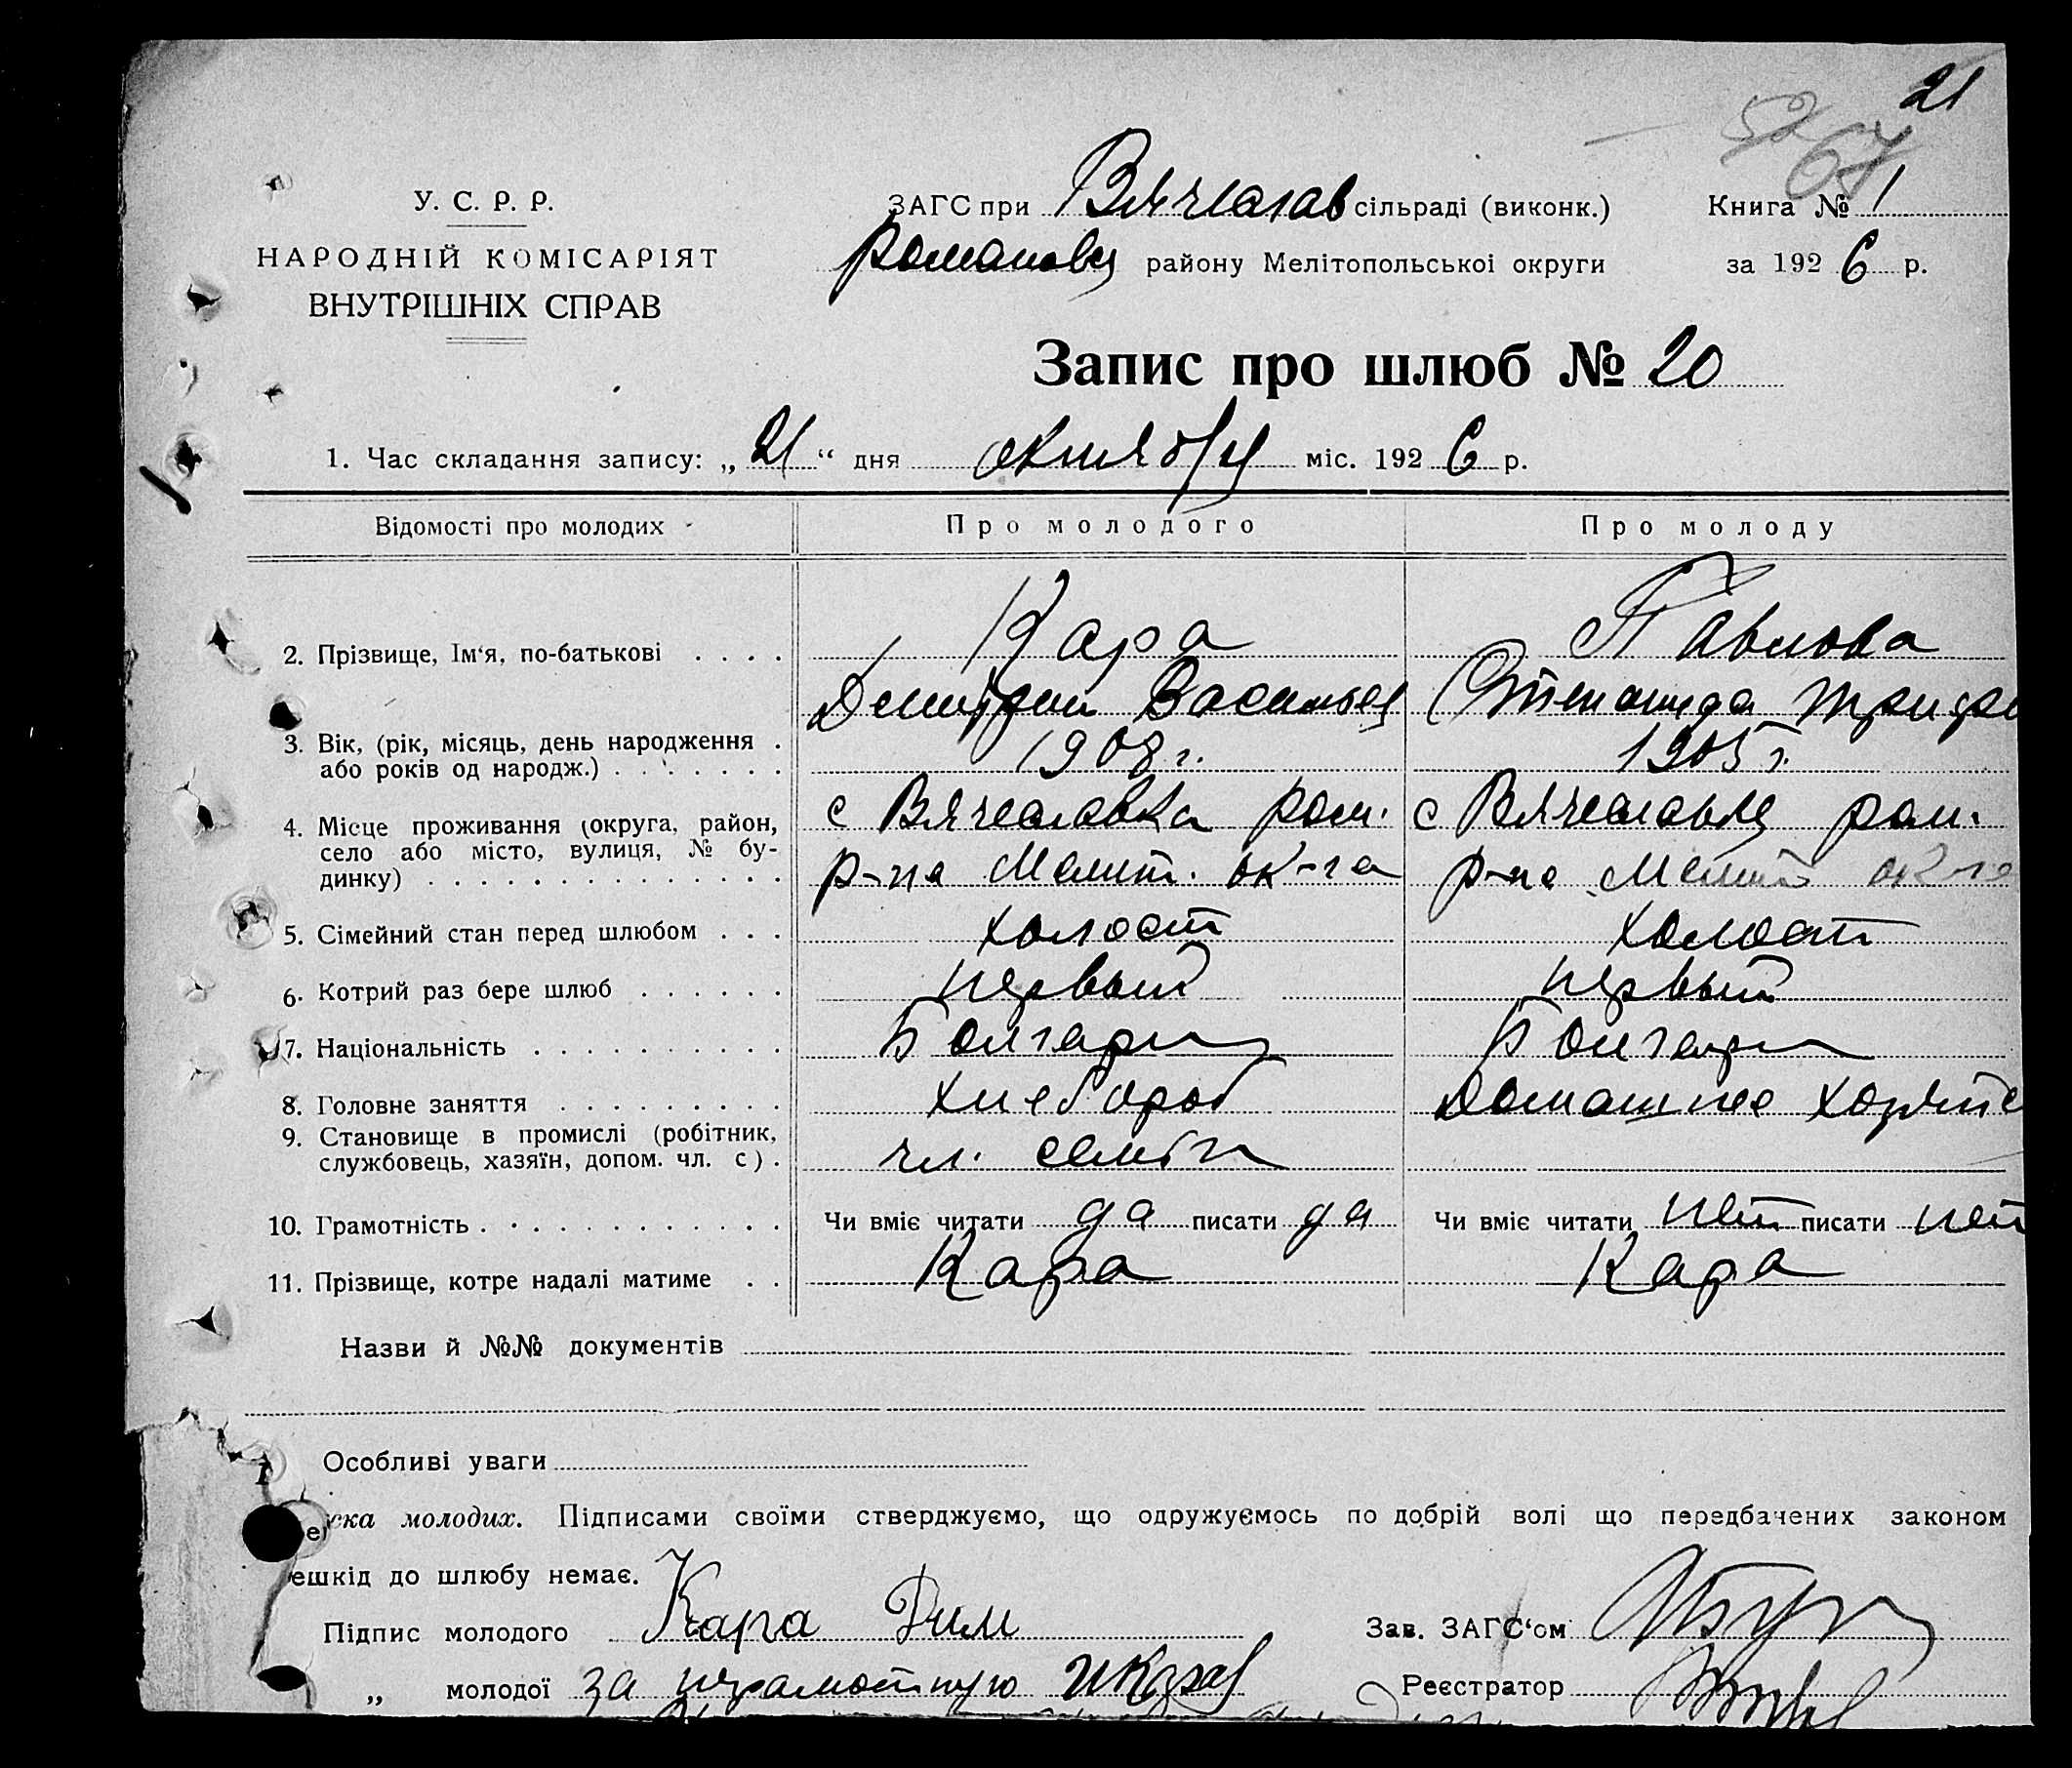 21
52
67
У. С. Р. Р.
НАРОДНІЙ КОМІСАРІЯТ
ВНУТРІШНІХ СПРАВ
ЗАГС при Вячеслав сільраді (виконк.) Книга № 1
Романовц району Мелітопольської округи за 1926 р.
Запис про шлюб № 20
1. Час складання запису: „21“ дня октября міс. 1926 р.
Відомості про молодих Про молодого Про молоду
2. Прізвище, Ім‘я, по-батькові . . . . Кара Павлова
Дмитрий Васильев Степанида Триф
3. Вік, (рік, місяць, день народження .
або років од народж.) . . . . . . . 1908 г. 1905 г.
4. Місце проживання (округа, район, с Вячеславка Ром. с Вячеславка ром.
село або місто, вулиця, № бу-
динку) . . . . . . . . . . . . . . р-на Мелит. ок-га р-на Мелит ок-га
5. Сімейний стан перед шлюбом . . . холост холост
6. Котрий раз бере шлюб . . . . . . первый первый
7. Національність . . . . . . . . . . Болгарин Болгарк
8. Головне заняття . . . . . . . . . хлебороб Домашнее хозяйс
9. Становище в промислі (робітник,
службовець, хазяїн, допом. чл. с) . чл. семьи
10. Грамотність . . . . . . . . . . . Чи вміє читати да писати да Чи вміє читати нет писати нет
11. Прізвище, котре надалі матиме . . Кара Кара
Назви й №№ документів
Особливі уваги
ска молодих. Підписами своїми стверджуємо, що одружуємось по добрій волі що передбачених законом
ешкід до шлюбу немає.
Підпис молодого Кара Дим Зав. ЗАГС‘ом
„ молодої за неграмотную Реєстратор